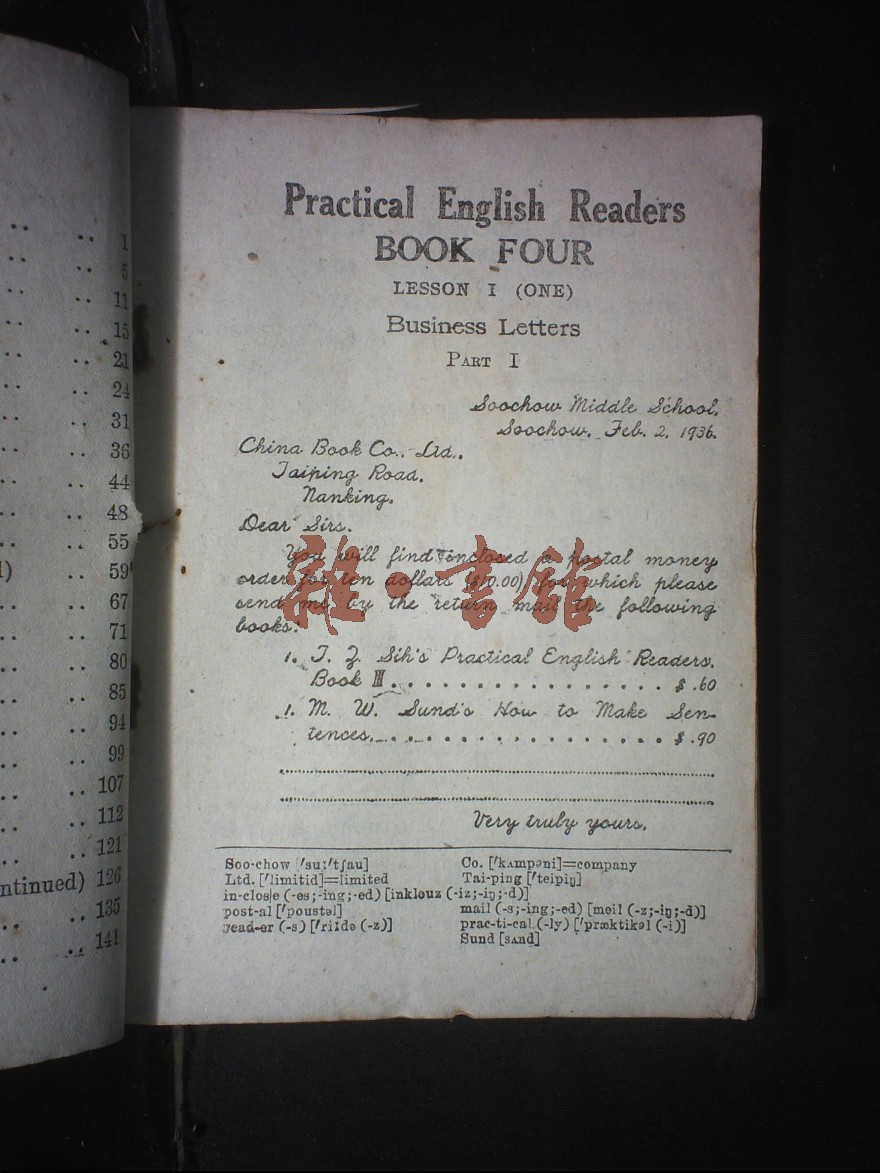 1
5
11
15
21
24
31
36
44
48
55
) 59
67
71
80
85
94
99
107
112
121
ntinued) 126
135
141
Practical English Readers
BOOK FOUR
LESSON I (ONE)
Business Letters
PART I
Soochow Middle School,
Soochow, Feb. 2, 1936.
China Book Co., Ltd.,
Taiping Road,
Nanking.
Dear Sirs,
You will find enclosed a postal money
order for ten dollars ($10.00) for which please
send me by the return mail the following
books:
1. T. Z. Sih's Practical English Readers,
Book III . . . . . . . . . . . . . . . . . $ .60
1. M. W. Sund's How to Make Sen-
tences, . . . . . . . . . . . . . . . . . $ .90
Very truly yours,
Soo-chow ['su:'tʃau]
Co. ['kʌmpəni]=company
Ltd. ['limitid]=limited
Tai-ping ['teipiŋ]
in-clos|e (-es;-ing;-ed) [inklouz (-iz;-iŋ;-d)]
post-al ['poustəl]
mail (-s;-ing;-ed) [meil (-z;-iŋ;-d)]
read-er (-s) ['ri:də (-z)]
prac-ti-cal (-ly) ['præktikəl (-i)]
Sund [sʌnd]
雜·書館